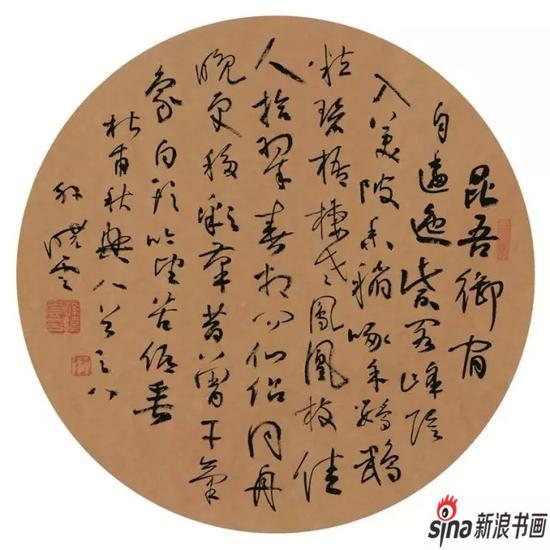 昆吾御宿
自逶迤紫閣峰陰
入渼陂香稻啄余鸚鵡
粒碧梧棲老鳳凰枝佳
人拾翠春相问仙侣同舟
晚更移彩筆昔曾干氣
象白头吟望苦低垂
杜甫秋興八首之八
孙晓云
sina新浪书画